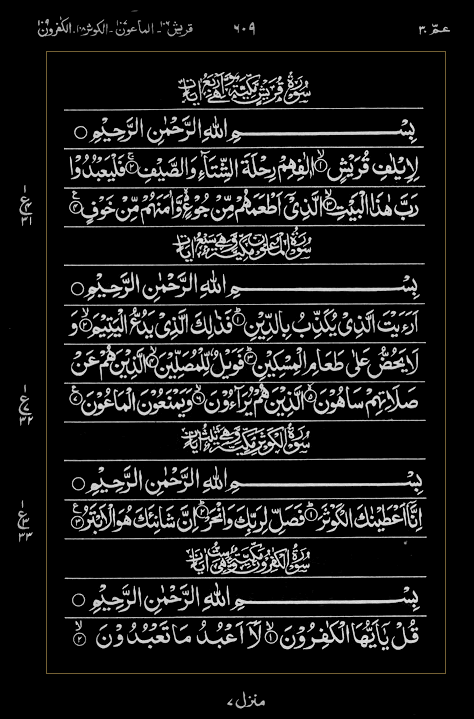 عـمّ ٣٠ ٦٠٩ قريش ١٠٦ - الماعون ١٠٧ - الكوثر ١٠٨ - الكٰفرون ١٠٩
سُوْرَةُ قُرَيْشٍ مَّكِّيَّةٌ وَّهِيَ اَرْبَعُ اٰيَاتٍ
بِسْــــــمِ اللّٰهِ الرَّحْمٰنِ الرَّحِيْمِ ○
لِاِيْلٰفِ قُرَيْشٍ ۙ﴿١﴾ اٖلٰفِهِمْ رِحْلَةَ الشِّتَآءِ وَالصَّيْفِ ۚ﴿٢﴾ فَلْيَعْبُدُوْا
رَبَّ هٰذَا الْبَيْتِ ۙ﴿٣﴾ الَّذِيْٓ اَطْعَمَهُمْ مِّنْ جُوْعٍ ۙ وَّاٰمَنَهُمْ مِّنْ خَوْفٍ ﴿٤﴾
١ ع ٤ ٣١
سُوْرَةُ الْمَاعُوْنِ مَكِّيَّةٌ وَّهِيَ سَبْعُ اٰيَاتٍ
بِسْــــــمِ اللّٰهِ الرَّحْمٰنِ الرَّحِيْمِ ○
اَرَءَيْتَ الَّذِيْ يُكَذِّبُ بِالدِّيْنِ ﴿١﴾ فَذٰلِكَ الَّذِيْ يَدُعُّ الْيَتِيْمَ ۙ﴿٢﴾ وَ
لَا يَحُضُّ عَلٰى طَعَامِ الْمِسْكِيْنِ ﴿٣﴾ فَوَيْلٌ لِّلْمُصَلِّيْنَ ۙ﴿٤﴾ الَّذِيْنَ هُمْ عَنْ
صَلَاتِهِمْ سَاهُوْنَ ۙ﴿٥﴾ الَّذِيْنَ هُمْ يُرَآءُوْنَ ۙ﴿٦﴾ وَيَمْنَعُوْنَ الْمَاعُوْنَ ﴿٧﴾
١ ع ٧ ٣٢
سُوْرَةُ الْكَوْثَرِ مَكِّيَّةٌ وَّهِيَ ثَلٰثُ اٰيَاتٍ
بِسْــــــمِ اللّٰهِ الرَّحْمٰنِ الرَّحِيْمِ ○
اِنَّآ اَعْطَيْنٰكَ الْكَوْثَرَ ﴿١﴾ فَصَلِّ لِرَبِّكَ وَانْحَرْ ﴿٢﴾ اِنَّ شَانِئَكَ هُوَ الْاَبْتَرُ ﴿٣﴾
١ ع ٣ ٣٣
سُوْرَةُ الْكٰفِرُوْنَ مَكِّيَّةٌ وَّهِيَ سِتُّ اٰيَاتٍ
بِسْــــــمِ اللّٰهِ الرَّحْمٰنِ الرَّحِيْمِ ○
قُلْ يٰٓاَيُّهَا الْكٰفِرُوْنَ ۙ﴿١﴾ لَآ اَعْبُدُ مَا تَعْبُدُوْنَ ۙ﴿٢﴾
منزل ٧